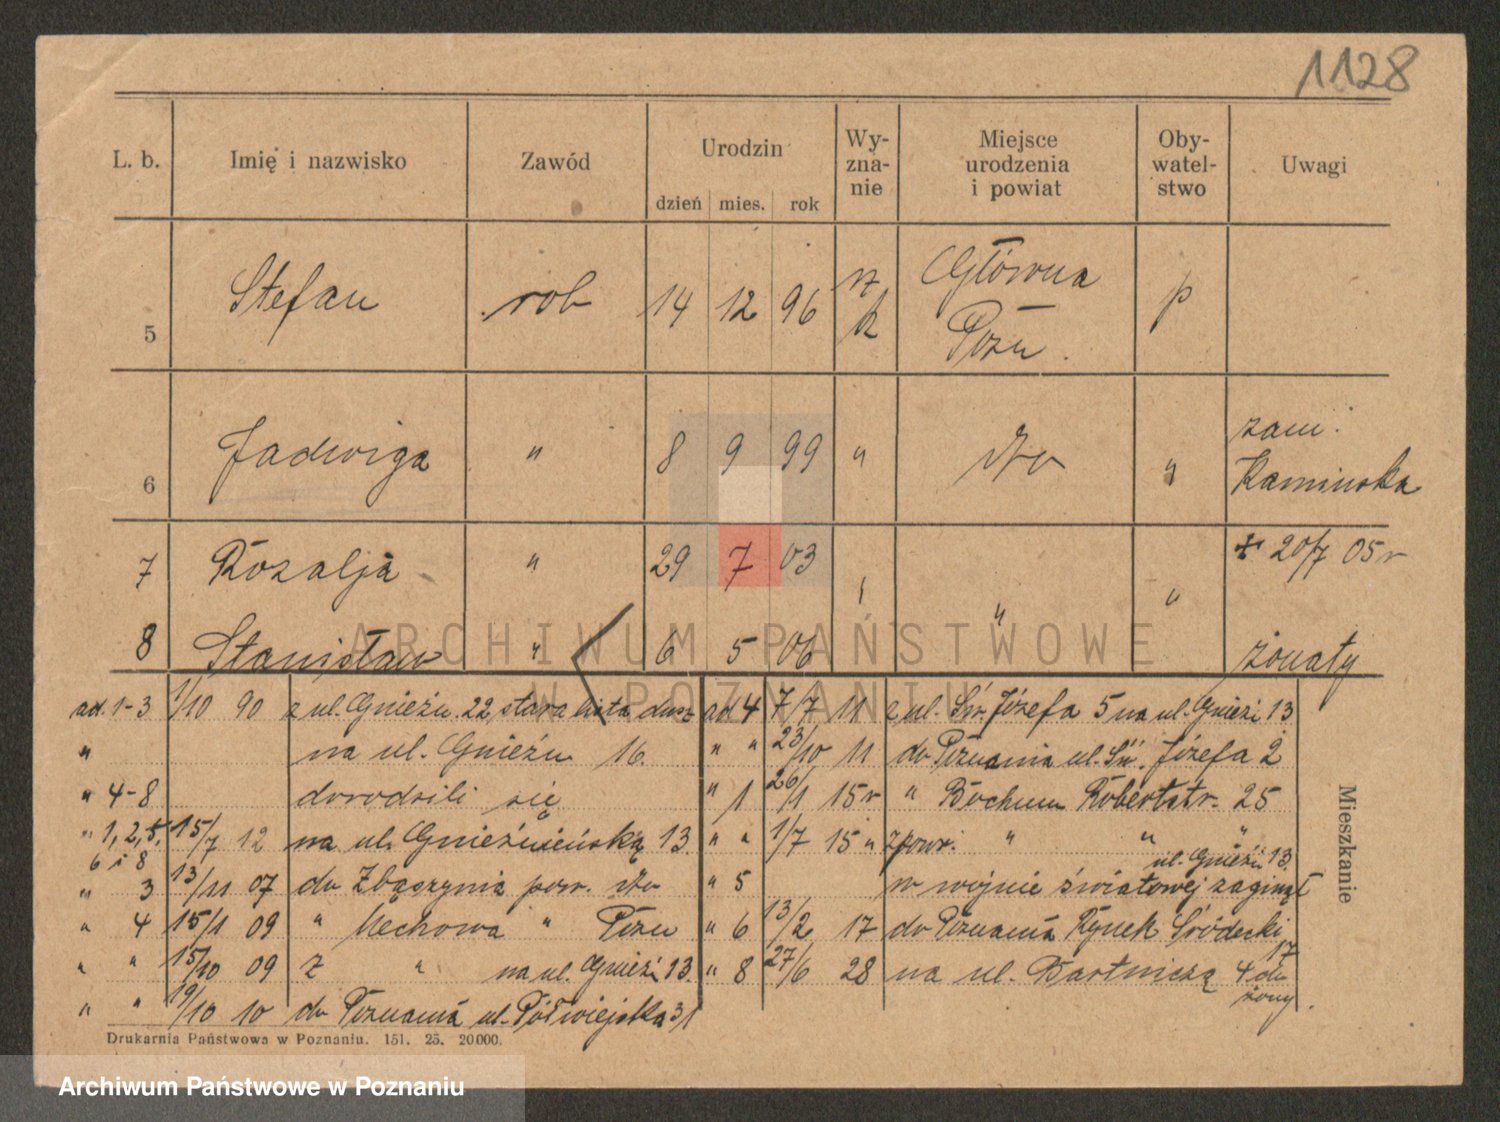 1128
L. b. Imię i nazwisko Zawód Urodzin dzień mies. rok Wy-zna-nie Miejsce urodzenia i powiat Oby-watel-stwo Uwagi
5 Stefan rob 14 12 96 rz k Główna Pozn. p
6 Jadwiga " 8 9 99 " dto " zam. Kaminska
7 Rozalja " 29 7 03 " " " + 20/7 05 r
8 Stanisław " 6 5 06 żonaty
ARCHIWUM PAŃSTWOWE
W POZNANIU
ad. 1-3 1/10 90 z ul. Gnieźn. 22 stara lista dusz
" na ul. Gnieźn 16.
" 4-8 dorodzili się
" 1, 2, 5, 6 i 8 15/7 12 na ul. Gnieźnieńską 13.
" 3 13/11 07 do Zbąszynia pow. dto
" 4 15/1 09 " Mechowa " Pozn
" " 15/10 09 z " na ul. Gnieźń 13.
" " 19/10 10 do Poznania ul. Półwiejska 31
ad 4 7/7 11 z ul. Św. Józefa 5 na ul. Gnieźń 13
" " 23/10 11 do Poznania ul. Św. Józefa 2
" 1 26/1 15 r " Bochum Robertstr. 25
" " 1/7 15 " z powr. " " " ul. Gnieźń 13.
" 5 w wojnie światowej zaginął
" 6 13/2 17 do Poznania Rynek Śródecki 17
" 8 27/6 28 na ul. Bartniczą 4 do żony.
Mieszkanie
Drukarnia Państwowa w Poznaniu. 151. 25. 20 000.
Archiwum Państwowe w Poznaniu